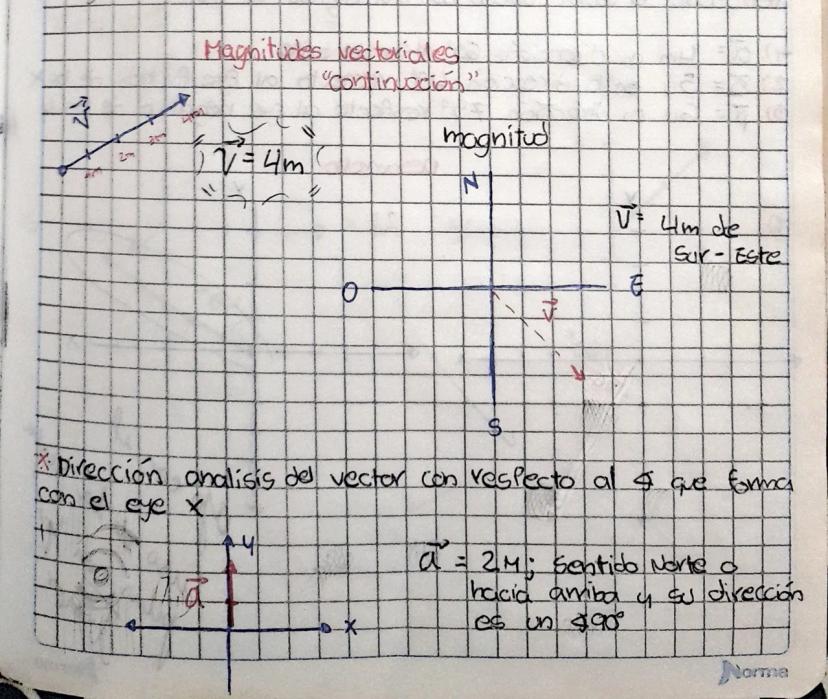 Magnitudes vectoriales
"continuación"
V
1m 2m 3m 4m
V = 4m
magnitud
N
V = 4m de
Sur - Este
O
E
V
S
* Dirección analisis del vector con respecto al ∡ que forma
con el eye x
y
a
x
a = 2M; sentido Norte o
hacia arriba y su dirección
es un ∡90°
Norma